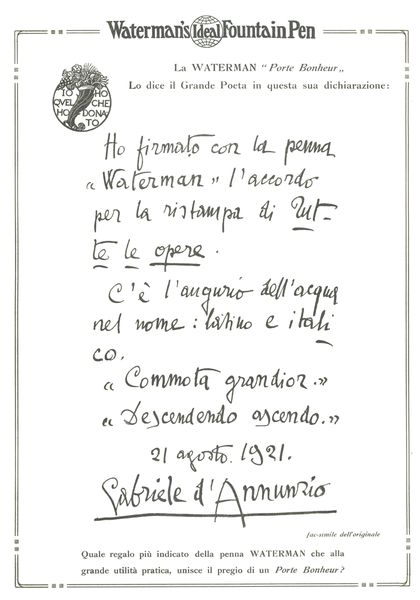 Waterman's Ideal Fountain Pen
La WATERMAN "Porte Bonheur„
Lo dice il Grande Poeta in questa sua dichiarazione:
IO HO
QVEL CHE
HO DONA
TO
Ho firmato con la penna
« Waterman » l'accordo
per la ristampa di Tut-
te le opere.
C'è l'augurio dell'acqua
nel nome: latino e itali
co.
« Commota grandior. »
« Descendendo ascendo. »
21 agosto. 1921.
Gabriele d'Annunzio
fac-simile dell'originale
Quale regalo più indicato della penna WATERMAN che alla
grande utilità pratica, unisce il pregio di un Porte Bonheur?